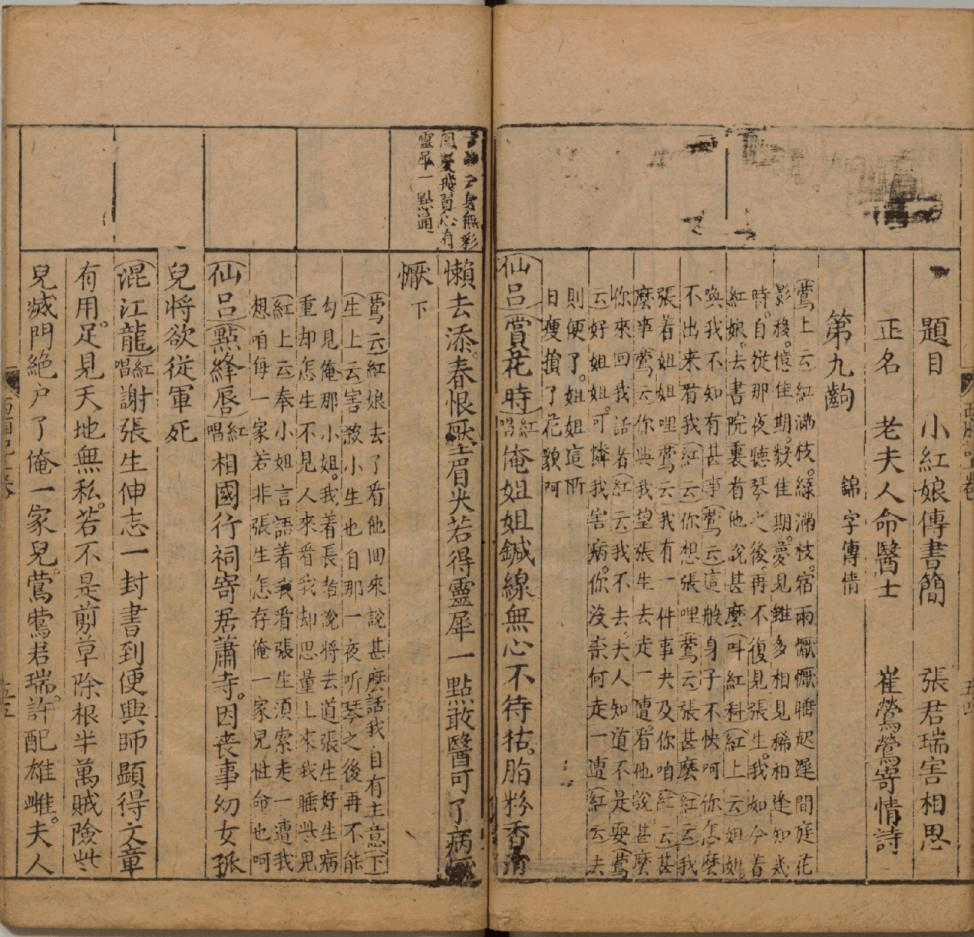 題目 小紅娘傳書簡 張君瑞害相思
正名 老夫人命醫士 崔鶯鶯寄情詩
第九齣 錦字傳情
鶯上云紅滿枝。綠滿枝。宿雨懨懨睡起遲 間庭花
影移。憶佳期。數佳期。夢見雖多相見稀相逢知幾
時。自從那夜聽琴之後再不復見張生。我如今着
紅娘。去書院裏看他說甚麼 叫紅科 紅上云姐姐。
喚我不知有甚事 鶯云這般身子不快呵 你怎麼
不出來看我 紅云你想張哩鶯云張甚麼 紅云我
張着姐姐哩鶯云我有一件事央及你咱 紅云甚
麼事鶯云你與我望張生去走一遭看他說甚麼
你來回我話者紅云我不去夫人知道不是耍鶯
云好姐姐可憐我害病。你沒柰何走一遭 紅云去
則便了。姐姐這所
日瘦損了花貌呵
仙呂 賞花時 紅唱 俺姐姐鍼線無心不待拈。脂粉香消
懶去添。春恨壓眉尖若得靈犀一點敢醫可了病懨
懨 下
鶯云紅娘去了看他回來說甚麽話我自有主意下
生上云害殺小生也自那一夜听琴之後再不能
勾見俺那小姐。我着長老說將去道張生好生病
重却怎生不見人來看我却思量上來我睡些兒
紅上云奉小姐言語着我看張生須索走一遭我
想咱每一家若非張生怎存俺一家兒性命也呵
仙呂 點絳唇 紅唱 相國行祠寄居蕭寺。因喪事幼女孤
兒將欲從軍死
混江龍 紅唱 謝張生伸志一封書到便興師顯得文章
有用。足見天地無私。若不是剪草除根半萬賊險些
兒滅門絶户了俺一家兒。鶯鶯君瑞。許配雄雌。夫人
身無彩
鳳雙飛翼心有
靈犀一點通